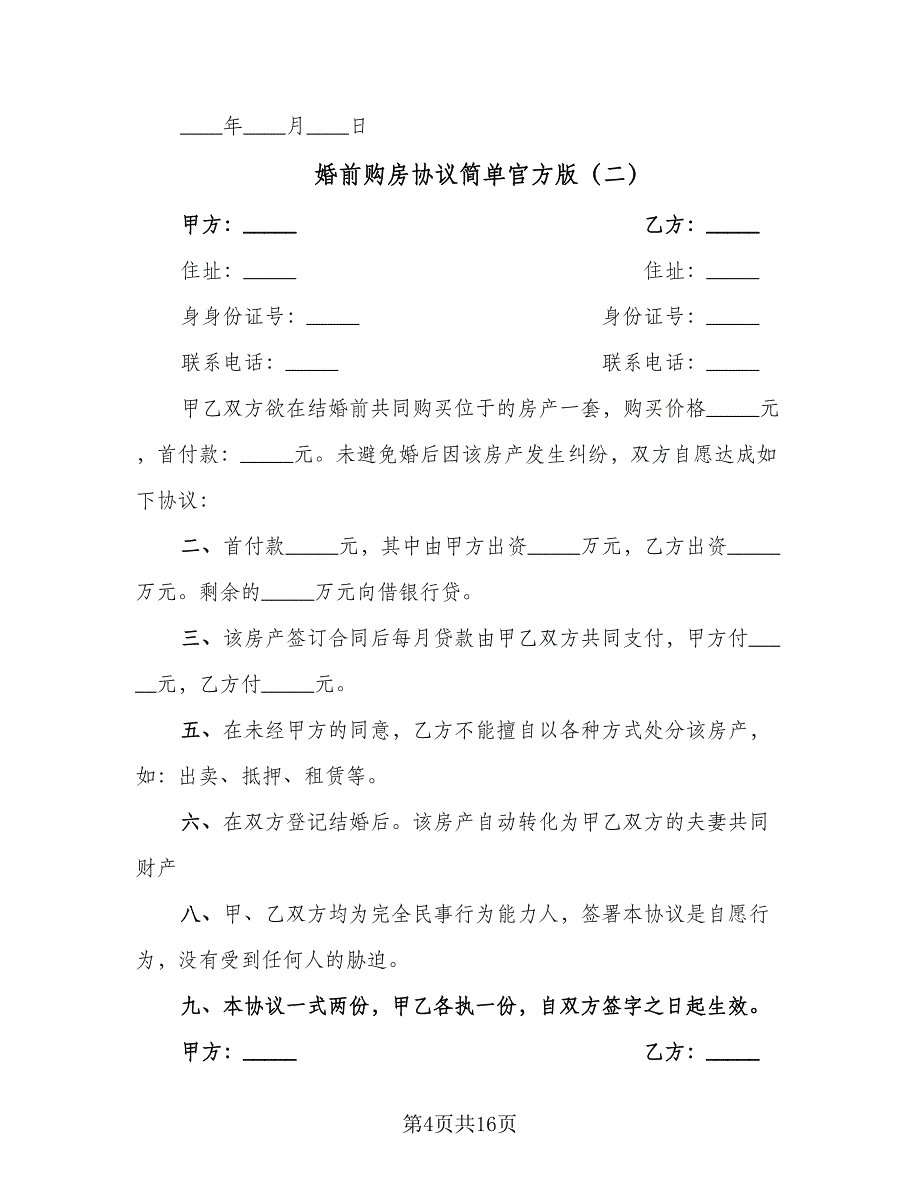 ____年____月____日
婚前购房协议简单官方版（二）
甲方：_____ 乙方：_____
住址：_____ 住址：_____
身身份证号：_____ 身份证号：_____
联系电话：_____ 联系电话：_____
甲乙双方欲在结婚前共同购买位于的房产一套，购买价格_____元
，首付款：_____元。未避免婚后因该房产发生纠纷，双方自愿达成如
下协议：
二、首付款_____元，其中由甲方出资_____万元，乙方出资_____
万元。剩余的_____万元向借银行贷。
三、该房产签订合同后每月贷款由甲乙双方共同支付，甲方付___
__元，乙方付_____元。
五、在未经甲方的同意，乙方不能擅自以各种方式处分该房产，
如：出卖、抵押、租赁等。
六、在双方登记结婚后。该房产自动转化为甲乙双方的夫妻共同
财产
八、甲、乙双方均为完全民事行为能力人，签署本协议是自愿行
为，没有受到任何人的胁迫。
九、本协议一式两份，甲乙各执一份，自双方签字之日起生效。
甲方：_____ 乙方：_____
第4页共16页